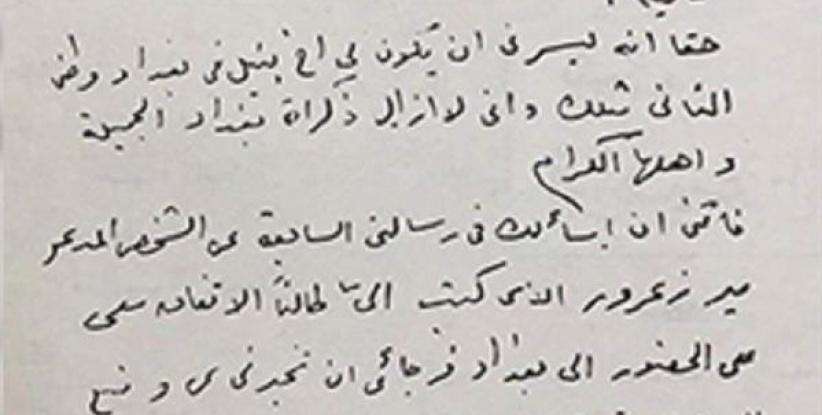 حقا انه ليسرنى ان يكون لي اخ نبيل فى بغداد وطنى
الثانى مثلك وانى لا ازال ذكراة بغداد الجميلة
و اهلها الكرام
فاتنى ان اسألك فى رسالتى السابعة عن الشخص المدعو
زعرور الذى كتب الىّ طالباً الاتفاق معى
على الحضور الى بغداد فرجائى ان تخبرنى عن و